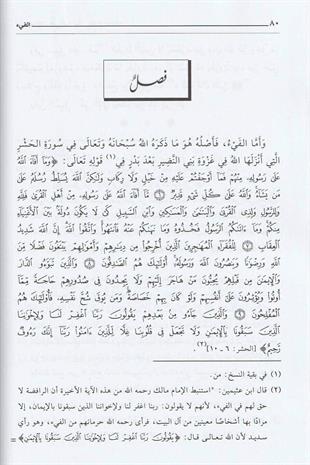 ٨٠ الفيء
فصل
وَأَمَّا الفَيْءُ، فَأَصْلُهُ هُوَ مَا ذَكَرَهُ اللهُ سُبْحَانَهُ وَتَعَالَى فِي سُورَةِ الحَشْرِ
الَّتِي أَنْزَلَهَا اللهُ فِي غَزْوَةِ بَنِي النَّضِيرِ بَعْدَ بَدْرٍ فِي(١) قَوْلِهِ تَعَالَى: ﴿وَمَا أَفَاءَ اللَّهُ
عَلَى رَسُولِهِ مِنْهُمْ فَمَا أَوْجَفْتُمْ عَلَيْهِ مِنْ خَيْلٍ وَلَا رِكَابٍ وَلَكِنَّ اللَّهَ يُسَلِّطُ رُسُلَهُ عَلَى
مَن يَشَاءُ وَاللَّهُ عَلَى كُلِّ شَيْءٍ قَدِيرٌ ۝ مَّا أَفَاءَ اللَّهُ عَلَى رَسُولِهِ مِنْ أَهْلِ الْقُرَى فَلِلَّهِ
وَلِلرَّسُولِ وَلِذِي الْقُرْبَى وَالْيَتَامَى وَالْمَسَاكِينِ وَابْنِ السَّبِيلِ كَيْ لَا يَكُونَ دُولَةً بَيْنَ الْأَغْنِيَاءِ
مِنكُمْ وَمَا آتَاكُمُ الرَّسُولُ فَخُذُوهُ وَمَا نَهَاكُمْ عَنْهُ فَانتَهُوا وَاتَّقُوا اللَّهَ إِنَّ اللَّهَ شَدِيدُ
الْعِقَابِ ۝ لِلْفُقَرَاءِ الْمُهَاجِرِينَ الَّذِينَ أُخْرِجُوا مِن دِيَارِهِمْ وَأَمْوَالِهِمْ يَبْتَغُونَ فَضْلًا مِّنَ
اللَّهِ وَرِضْوَانًا وَيَنصُرُونَ اللَّهَ وَرَسُولَهُ أُولَئِكَ هُمُ الصَّادِقُونَ ۝ وَالَّذِينَ تَبَوَّءُوا الدَّارَ
وَالْإِيمَانَ مِن قَبْلِهِمْ يُحِبُّونَ مَنْ هَاجَرَ إِلَيْهِمْ وَلَا يَجِدُونَ فِي صُدُورِهِمْ حَاجَةً مِّمَّا
أُوتُوا وَيُؤْثِرُونَ عَلَى أَنفُسِهِمْ وَلَوْ كَانَ بِهِمْ خَصَاصَةٌ وَمَن يُوقَ شُحَّ نَفْسِهِ فَأُولَئِكَ هُمُ
الْمُفْلِحُونَ ۝ وَالَّذِينَ جَاءُوا مِن بَعْدِهِمْ يَقُولُونَ رَبَّنَا اغْفِرْ لَنَا وَلِإِخْوَانِنَا
الَّذِينَ سَبَقُونَا بِالْإِيمَانِ وَلَا تَجْعَلْ فِي قُلُوبِنَا غِلًّا لِّلَّذِينَ آمَنُوا رَبَّنَا إِنَّكَ رَءُوفٌ
رَّحِيمٌ﴾ [الحشر: ٦ - ١٠](٢).
(١) في بقية النسخ: من.
(٢) قال ابن عثيمين: «استنبط الإمام مالك رحمه الله من هذه الآية الأخيرة أن الرافضة لا
حق لهم في الفيء، لأنهم لا يقولون: ربنا اغفر لنا ولإخواننا الذين سبقونا بالإيمان، إلا
مرادًا بها أشخاصًا معينين من آل البيت، فرأى رحمه الله حرمانهم من الفيء، وهو رأي
سديد لأن الله تعالى قال: ﴿يَقُولُونَ رَبَّنَا اغْفِرْ لَنَا وَلِإِخْوَانِنَا الَّذِينَ سَبَقُونَا بِالْإِيمَانِ﴾ =